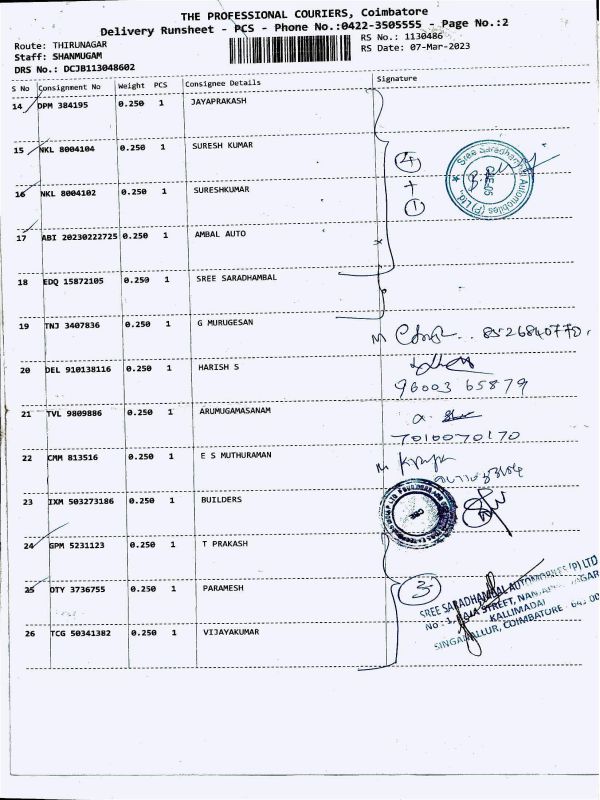 THE PROFESSIONAL COURIERS, Coimbatore
Delivery Runsheet - PCS - Phone No.:0422-3505555 - Page No.:2
Route: THIRUNAGAR
RS No.: 1130486
Staff: SHANMUGAM
RS Date: 07-Mar-2023
DRS No.: DCJB113048602
S No Consignment No Weight PCS Consignee Details Signature
14 DPM 384195 0.250 1 JAYAPRAKASH
15 NKL 8004104 0.250 1 SURESH KUMAR
16 NKL 8004102 0.250 1 SURESHKUMAR
17 ABI 20230222725 0.250 1 AMBAL AUTO
18 EDQ 15872105 0.250 1 SREE SARADHAMBAL
4
+
1
Sree Saradhambal Automobiles (P) Ltd.
19 TNJ 3407836 0.250 1 G MURUGESAN
8526840770
20 DEL 910138116 0.250 1 HARISH S
96003 65879
21 TVL 9809886 0.250 1 ARUMUGAMASANAM
7010070170
22 CMM 813516 0.250 1 E S MUTHURAMAN
23 IXM 503273186 0.250 1 BUILDERS
24 GPM 5231123 0.250 1 T PRAKASH
25 DTY 3736755 0.250 1 PARAMESH
3
26 TCG 50341382 0.250 1 VIJAYAKUMAR
SREE SARADHAMBAL AUTOMOBILES (P) LTD
KALLIMADAI
SINGANALLUR, COIMBATORE